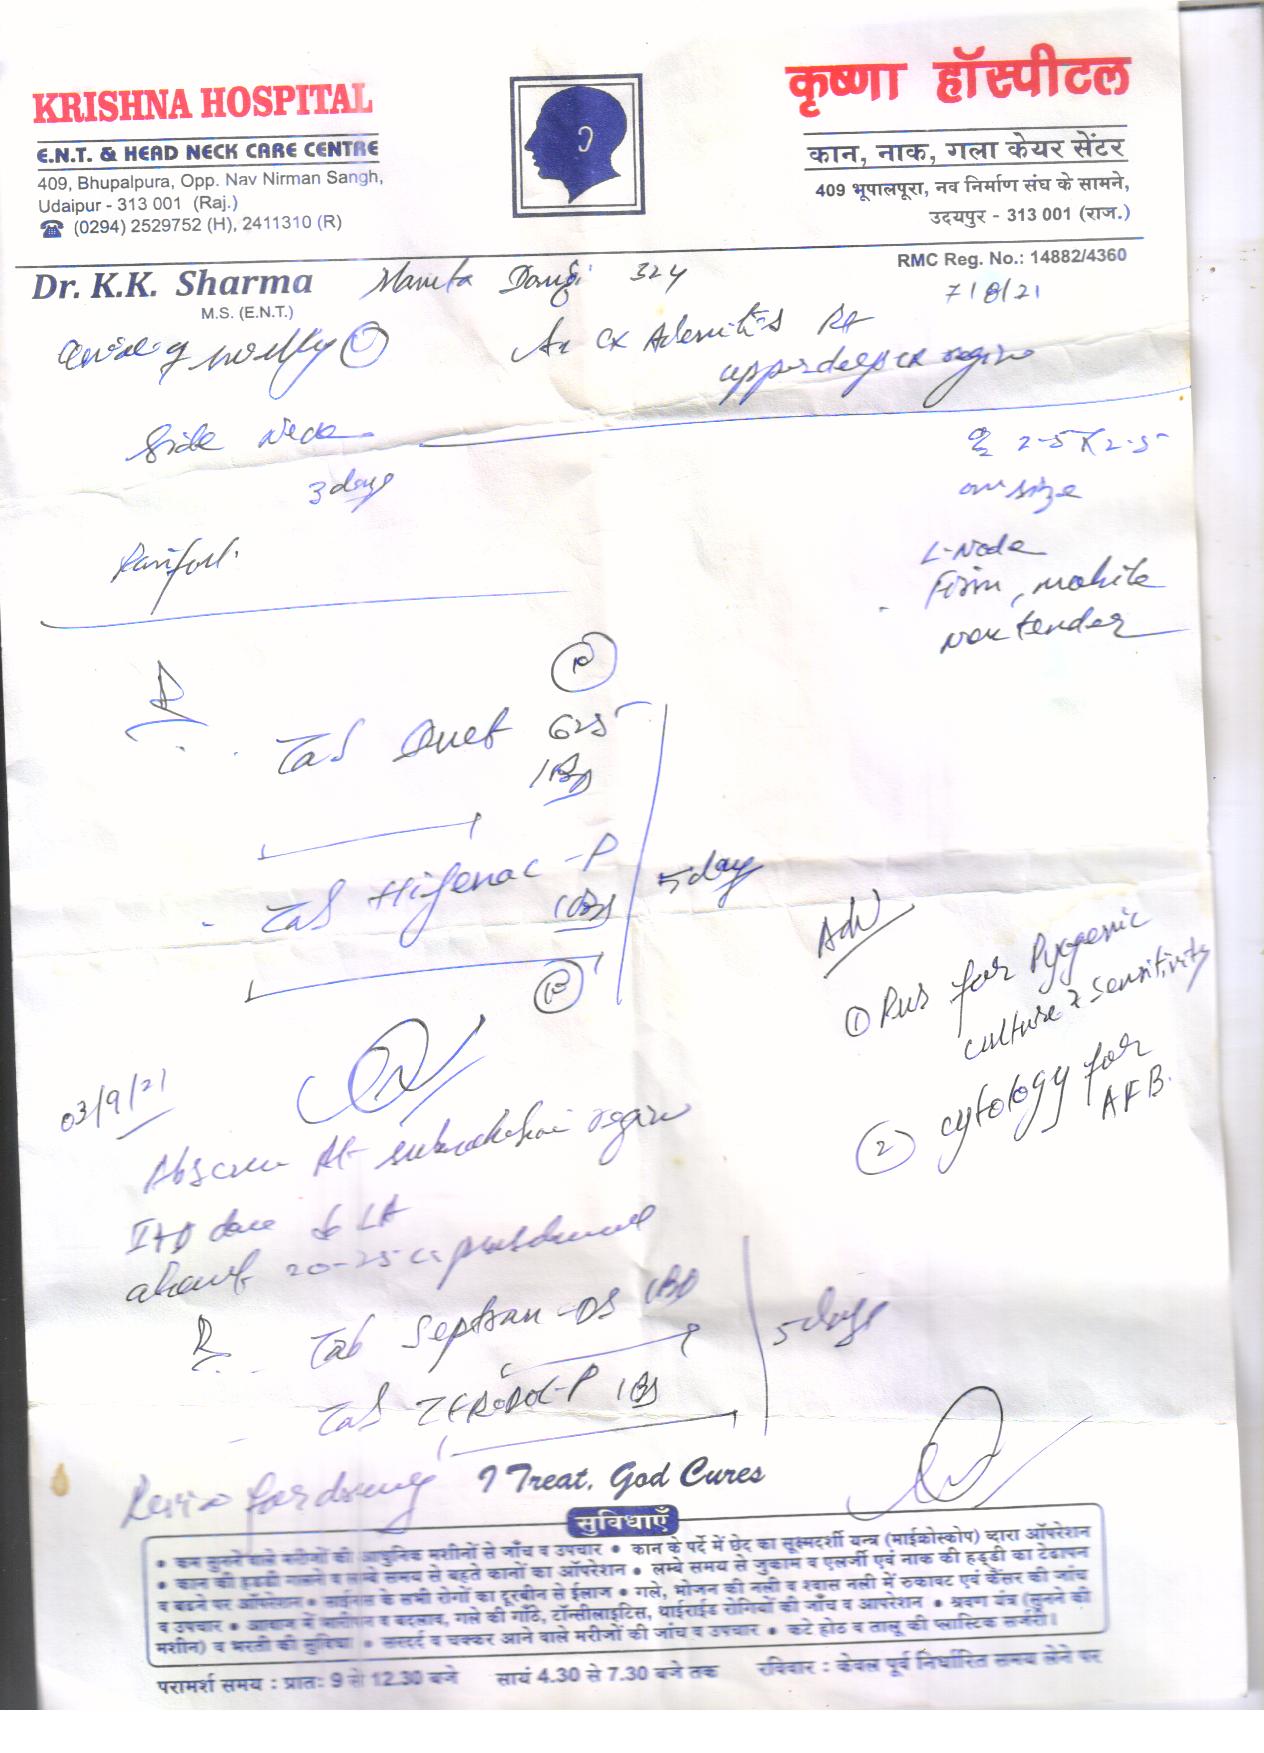 KRISHNA HOSPITAL
E.N.T. & HEAD NECK CARE CENTRE
409, Bhupalpura, Opp. Nav Nirman Sangh,
Udaipur - 313 001 (Raj.)
☎ (0294) 2529752 (H), 2411310 (R)
कृष्णा हॉस्पीटल
कान, नाक, गला केयर सेंटर
409 भूपालपूरा, नव निर्माण संघ के सामने,
उदयपुर - 313 001 (राज.)
RMC Reg. No.: 14882/4360
Dr. K.K. Sharma
M.S. (E.N.T.)
Mamta Dangi 32y
7/8/21
Cx Adenitis Rt
upper deep cx region
side neck
3 days
2.5 X 2.5
size
L-Node
Firm, mobile
non tender
R
Tab 625
1BD
Tab Hifenac-P
1BD
5 day
Adv
① Pus for Pyogenic
culture & sensitivity
② cytology for
AFB.
03/9/21
Abscess region
I+D done LA
about 20-25 cc pus
R
Tab Septran-DS 1BD
Tab ZERODOL-P 1BD
5 days
I Treat, God Cures
सुविधाएँ
• कम सुनने वाले मरीजों की आधुनिक मशीनों से जाँच व उपचार • कान के पर्दे में छेद का सूक्ष्मदर्शी यन्त्र (माईक्रोस्कोप) द्वारा ऑपरेशन
• कान की हड्डी गलने व लम्बे समय से बहते कानों का ऑपरेशन • लम्बे समय से जुकाम व एलर्जी एवं नाक की हड्डी का टेढापन
व बढने पर ऑपरेशन • साईनस के सभी रोगों का दूरबीन से ईलाज • गले, भोजन की नली व श्वास नली में रुकावट एवं कैंसर की जाँच
व उपचार • आवाज में भारीपन व बदलाव, गले की गाँठे, टॉन्सीलाइटिस, थाईराईड रोगियों की जाँच व आपरेशन • श्रवण यंत्र (सुनने की
मशीन) व भरती की सुविधा • सरदर्द व चक्कर आने वाले मरीजों की जाँच व उपचार • कटे होठ व तालू की प्लास्टिक सर्जरी।
परामर्श समय : प्रातः 9 से 12.30 बजे सायं 4.30 से 7.30 बजे तक रविवार : केवल पूर्व निर्धारित समय लेने पर